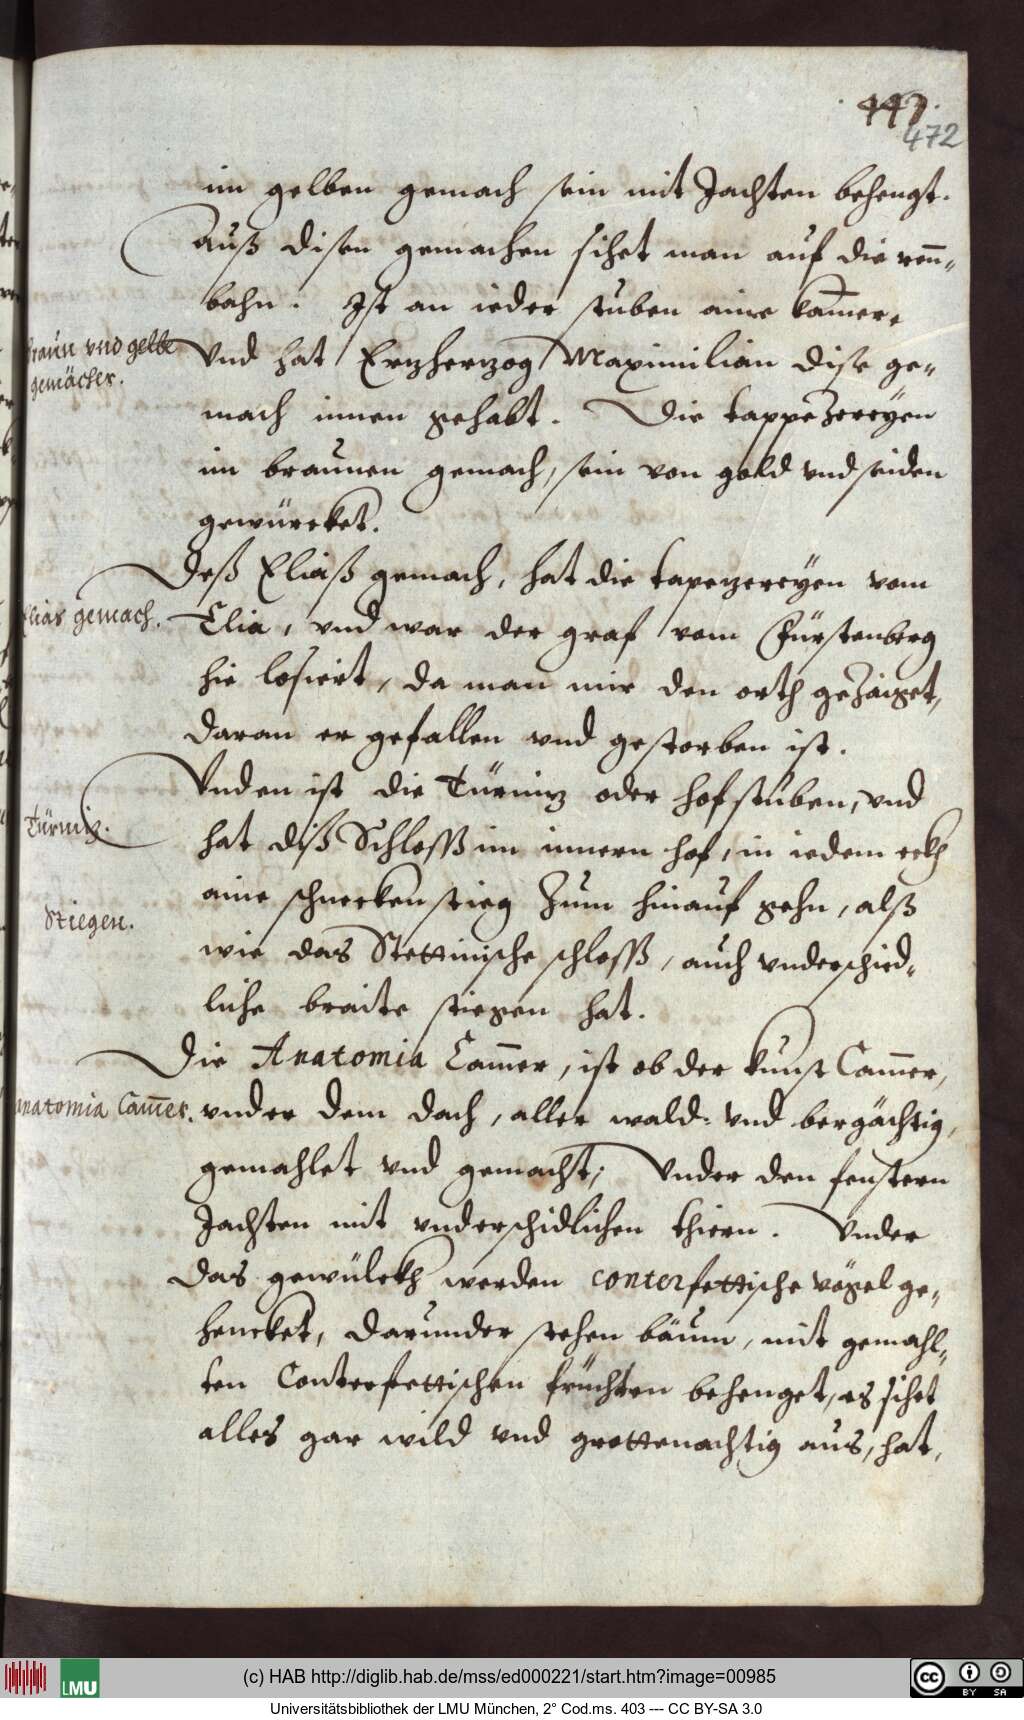 447.
472
im gelben gemach sein mit Jachten behengt.
Auß disen gemachen sihet man auf die renn-
bahn. Ist an ieder stuben aine kam̄er,
braun vnd gelbe
gemächer.
Vnd hat Ertzhertzog Maximilian dise ge-
mach innen gehabt. Die tappezereÿen
im braunen gemach, sein von gold vnd seiden
gewürcket.
Deß Eliaß gemach, hat die tapetzereÿen vom
Elias gemach.
Elia, vnd war der graf vom Fürstenberg
hie losiert, da man mir den orth gezaiget,
daran er gefallen vnd gestorben ist.
Vnden ist die Türnitz oder hofstuben, vnd
Türnitz.
hat diß Schloß im innern hof, in iedem eckh
aine schneckenstieg zum hinauf gehn, alß
Stiegen.
wie das Stettinische schloß, auch vnderschid-
liche braite stiegen hat.
Die Anatomia Cam̄er, ist ob der kunst Cam̄er,
Anatomia Cam̄er.
vnder dem dach, aller wald- vnd bergächtig,
gemahlet vnd gemacht; Vnder den fenstern
Jachten mit vnderschidlichen thiern. Vnder
das gewülckh werden conterfettische vögel ge-
hencket, darunder stehen bäum, mit gemahl-
ten Conterfettischen früchten behenget, es sihet
alles gar wild vnd grottenachtig aus, hat,
LMU
(c) HAB http://diglib.hab.de/mss/ed000221/start.htm?image=00985
cc BY SA
Universitätsbibliothek der LMU München, 2° Cod.ms. 403 --- CC BY-SA 3.0